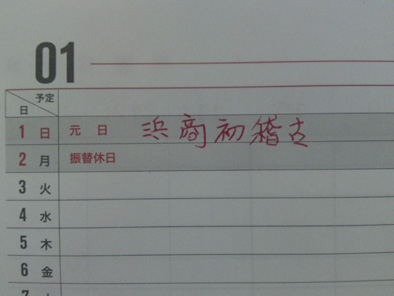 01
予定
日
1 日 元日 浜商初稽古
2 月 振替休日
3 火
4 水
5 木
6 金